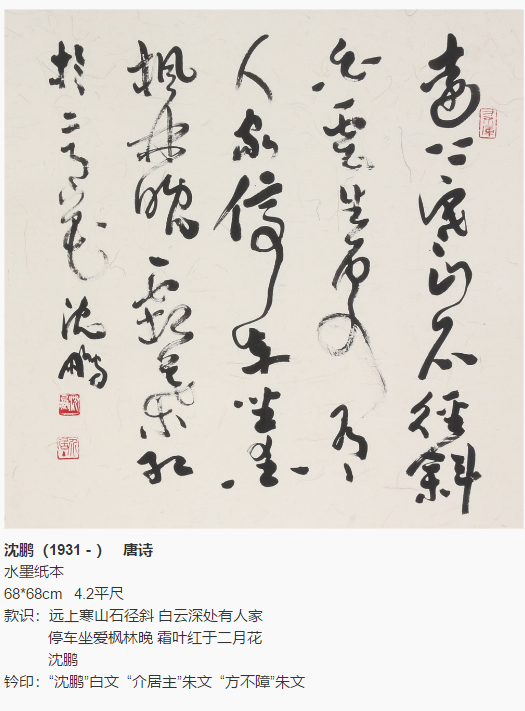 遠上寒山石徑斜
白雲生處有
人家停車坐愛
楓林晚霜葉紅
於二月花 沈鵬
沈鹏（1931 - ） 唐诗
水墨纸本
68*68cm 4.2平尺
款识：远上寒山石径斜 白云深处有人家
停车坐爱枫林晚 霜叶红于二月花
沈鹏
钤印：“沈鹏”白文 “介居主”朱文 “方不障”朱文